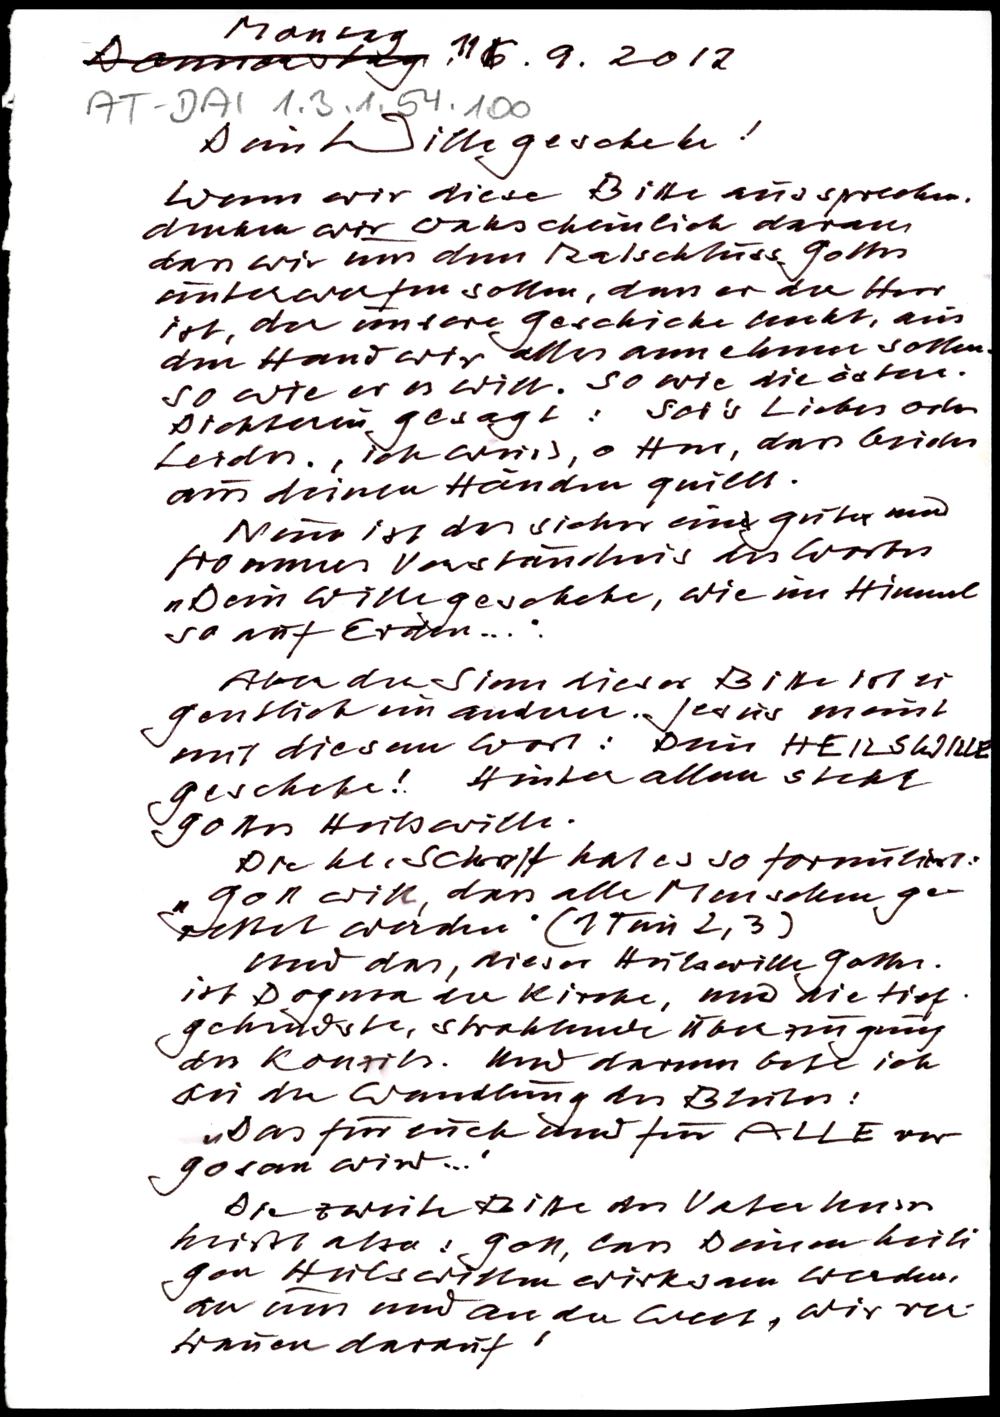 Montag
Donnerstag 16. 9. 2012
AT-DAI 1.3.1.54.100
Dein Wille geschehe!
Wenn wir diese Bitte aussprechen.
denken wir wahscheinlich daran
dass wir uns dem Ratschluss Gottes
unterwerfen sollen, dass er der Herr
ist, der unsere Geschicke lenkt, aus
den Hand wir alles annehmen sollen.
so wie er es will. So wie die österr.
Dichterin gesagt: Sei's Liebes oder
Leides., ich weiss, o Herr, dass beides
aus deinen Händen quillt.
Nun ist das sicher ein gutes und
frommes Verständnis des Wortes
„Dein Wille geschehe, wie im Himmel
so auf Erden...".
Aber der Sinn dieser Bitte ist ei
gentlich ein anderer. Jesus meint
mit diesem Wort: Dein HEILSWILLE
geschehe! Hinter allem steht
Gottes Heilswille.
Die hl. Schrift hat es so formuliert:
„Gott will, dass alle Menschen ge-
rettet werden" (1 Tim 2,3)
Und das, dieser Heilswille Gottes.
ist Dogma der Kirche, und die tief
gehendste, strahlende Überzeugung
des Konzils. Und darum bete ich
bei der Wandlung des Blutes:
„Das für euch und für ALLE ver
gosen wird..."
Die zweite Bitte des Vaterunsers
heisst also: Gott, lass Deinen heili
gen Heilswillen wirksam werden,
an uns und an der Welt, wir ver
trauen darauf!